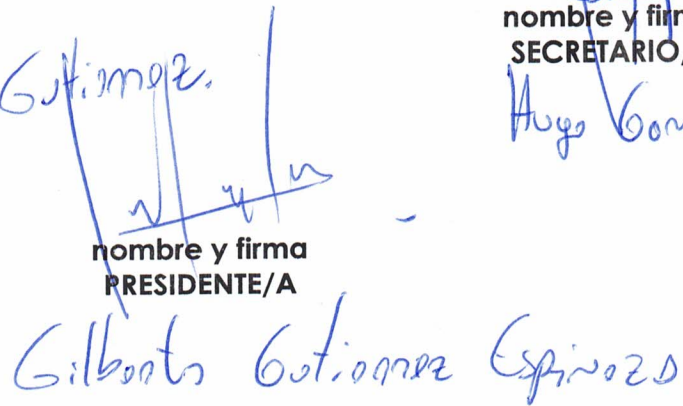 nombre y firm
SECRETARIO/
Gutierrez.
Hugo Gon
nombre y firma
PRESIDENTE/A
Gilberto Gutierrez Espinoza